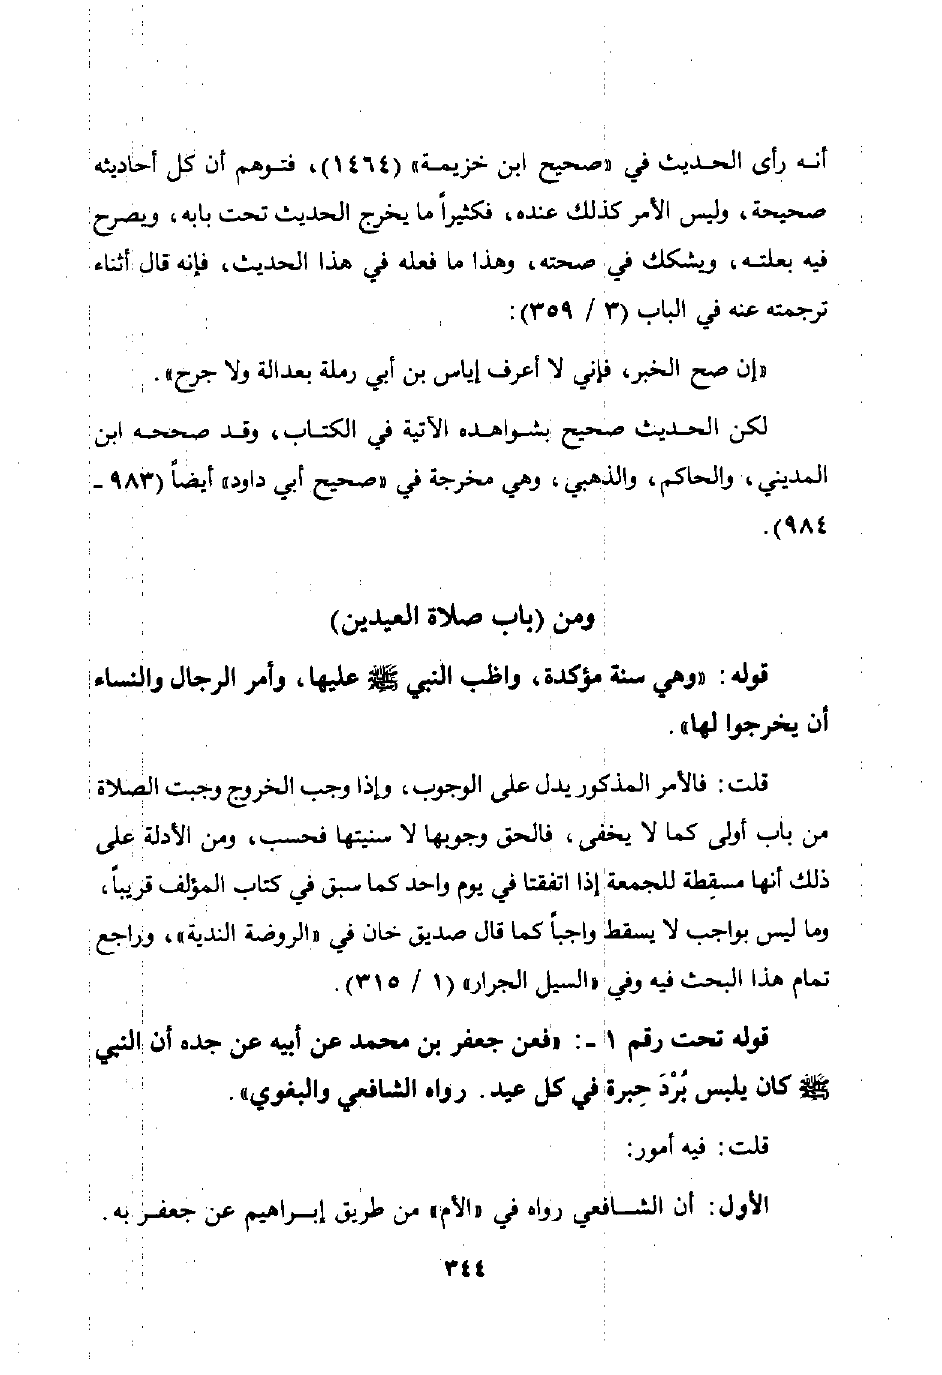 أنه رأى الحديث في «صحيح ابن خزيمة» (١٤٦٤)، فتوهم أن كل أحاديثه
صحيحة، وليس الأمر كذلك عنده، فكثيراً ما يخرج الحديث تحت بابه، ويصرح
فيه بعلته، ويشكك في صحته، وهذا ما فعله في هذا الحديث، فإنه قال أثناء
ترجمته عنه في الباب (٣ / ٣٥٩):
«إن صح الخبر، فإني لا أعرف إياس بن أبي رملة بعدالة ولا جرح».
لكن الحديث صحيح بشواهده الآتية في الكتاب، وقد صححه ابن
المديني، والحاكم، والذهبي، وهي مخرجة في «صحيح أبي داود» أيضاً (٩٨٣ -
٩٨٤).
ومن (باب صلاة العيدين)
قوله: «وهي سنة مؤكدة، واظب النبي ﷺ عليها، وأمر الرجال والنساء
أن يخرجوا لها».
قلت: فالأمر المذكور يدل على الوجوب، وإذا وجب الخروج وجبت الصلاة
من باب أولى كما لا يخفى، فالحق وجوبها لا سنيتها فحسب، ومن الأدلة على
ذلك أنها مسقِطة للجمعة إذا اتفقتا في يوم واحد كما سبق في كتاب المؤلف قريباً،
وما ليس بواجب لا يسقط واجباً كما قال صديق خان في «الروضة الندية»، وراجع
تمام هذا البحث فيه وفي «السيل الجرار» (١ / ٣١٥).
قوله تحت رقم ١ -: «فعن جعفر بن محمد عن أبيه عن جده أن النبي
ﷺ كان يلبس بُرْدَ حِبرة في كل عيد. رواه الشافعي والبغوي».
قلت: فيه أمور:
الأول: أن الشافعي رواه في «الأم» من طريق إبراهيم عن جعفر به.
٣٤٤